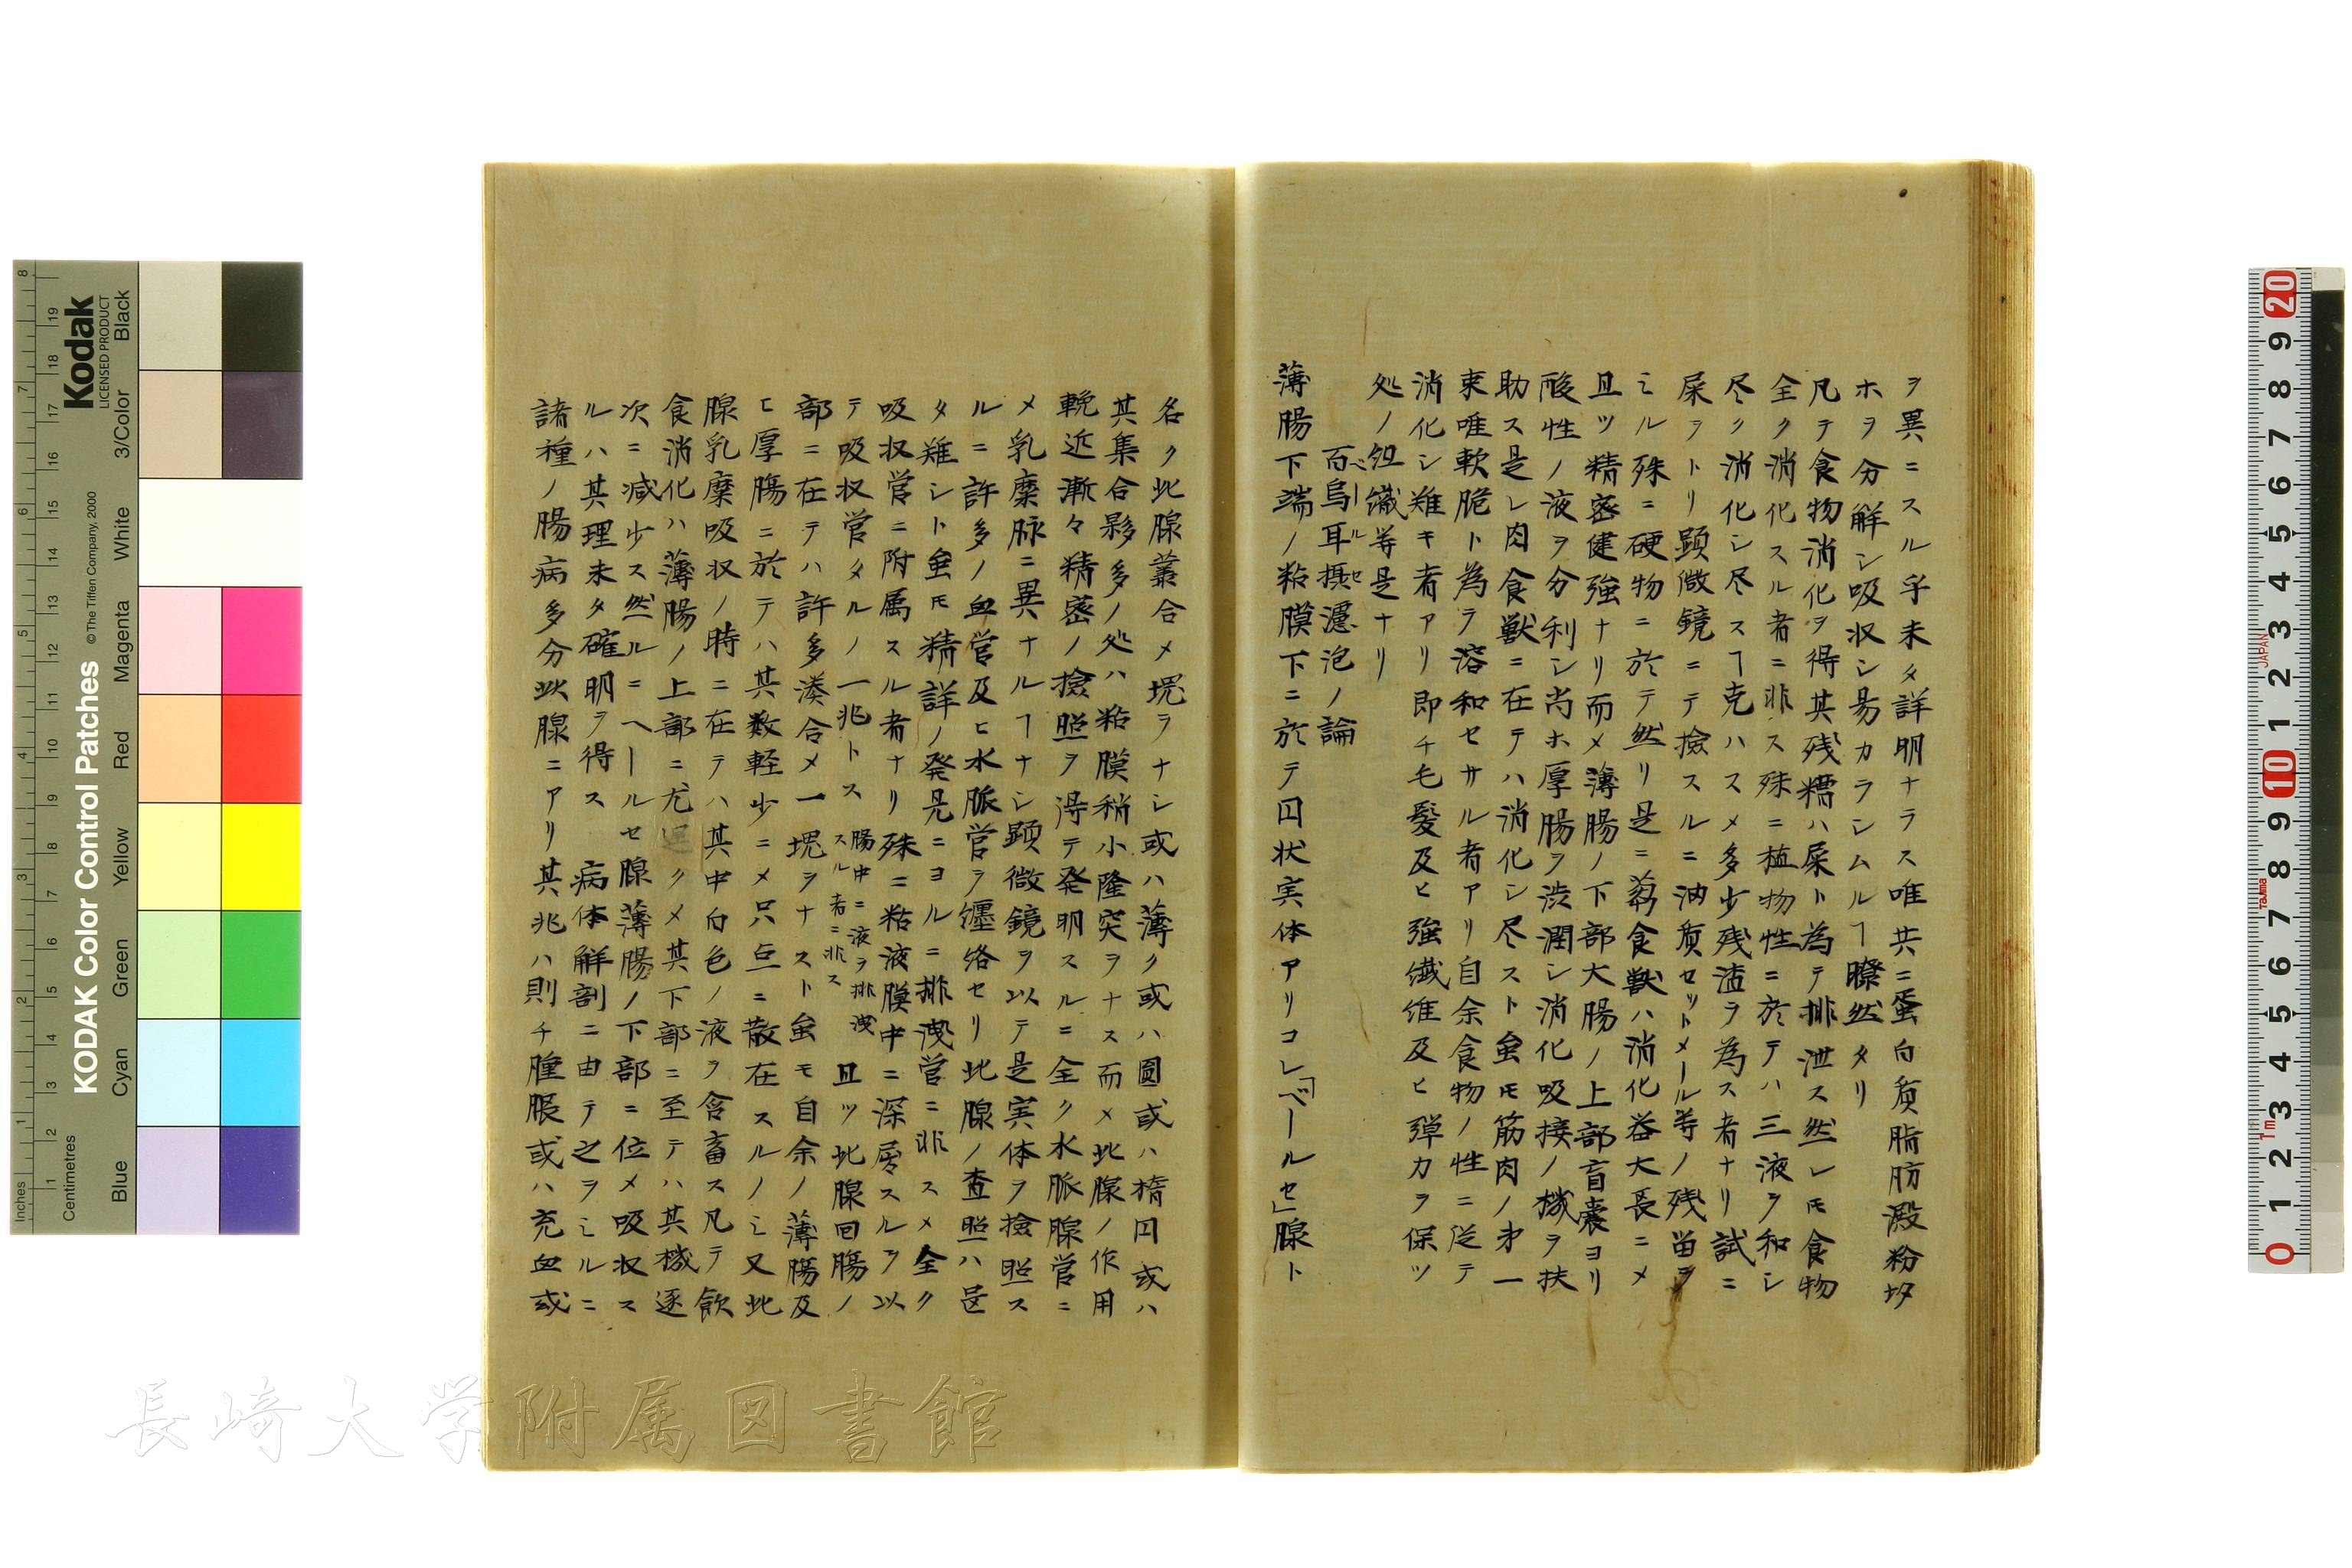 ヲ異ニスル乎未タ詳明ナラス唯共ニ蛋白質脂肪澱粉
ホヲ分解シ吸収シ易カラシムルヿ瞭然タリ
凡テ食物消化ヲ得其残糟ハ屎ト為テ排泄ス然レ𪜈食物
全ク消化スル者ニ非ス殊ニ植物性ニ於テハ三液ヲ和シ
尽ク消化シ尽スヿ克ハスメ多少残渣ヲ為ス者ナリ試ニ
屎ヲトリ顕微鏡ニテ撿スルニ油質セットメール等ノ残留ヲ
ミル殊ニ硬物ニ於テ然リ是ニ蒭食獣ハ消化器大長ニメ
且ツ精密健強ナリ而メ薄腸ノ下部大腸ノ上部盲嚢ヨリ
酸性ノ液ヲ分利シ尚ホ厚腸ヲ渋潤シ消化吸接ノ機ヲ扶
助ス是レ肉食獣ニ在テハ消化シ尽スト虽𪜈筋肉ノ第一
束唯軟脆ト為ラ溶和セサル者アリ自余食物ノ性ニ従テ
消化シ難キ者アリ即チ毛髪及ヒ強繊維及ヒ弾力ヲ保ツ
処ノ組織等是ナリ
百烏耳摂濾泡ノ論
ベール セ
薄腸下端ノ粘膜下ニ於テ円状実体アリコレ「ベールセ」腺ト
名ク此腺叢合メ塊ヲナシ或ハ薄ク或ハ圓或ハ楕円或ハ
其集合夥多ノ処ハ粘膜稍小隆突ヲナス而メ此腺ノ作用
輓近漸々精密ノ撿照ヲ得テ発明スルニ全ク水脈腺管ニ
メ乳糜脉ニ異ナルヿナシ顕微鏡ヲ以テ是実体ヲ撿照ス
ルニ許多ノ血管及ヒ水脈管ヲ纏絡セリ此腺ノ査照ハ𠯁
タ難シト虽𪜈精詳ノ発見ニヨルニ排洩管ニ非スメ全ク
吸収管ニ附属スル者ナリ殊ニ粘液膜中ニ深居スルヲ以
テ吸収管タルノ一兆トス 腸中ニ液ヲ排洩スル者ニ非ス 且ツ此腺回腸ノ
部ニ在テハ許多湊合メ一塊ヲナスト虽𪜈自余ノ薄腸及
ヒ厚腸ニ於テハ其数軽少ニメ只点ニ散在スルノミ又此
腺乳糜吸収ノ時ニ在テハ其中白色ノ液ヲ含畜ス凡テ飲
食消化ハ薄腸ノ上部ニ尤クメ其下部ニ至テハ其機逐
次ニ減少ス然ルニヘールセ腺薄腸ノ下部ニ位メ吸収ス
ルハ其理未タ確明ヲ得ス 病体解剖ニ由テ之ヲミルニ
諸種ノ腸病多分此腺ニアリ其兆ハ則チ腫脹或ハ充血或
長崎大学附属図書館
KODAK Color Control Patches
© The Tiffen Company, 2000
Kodak
LICENSED PRODUCT
Inches
Centimetres
Blue Cyan Green Yellow Red Magenta White 3/Color Black
JAPAN
Tajima